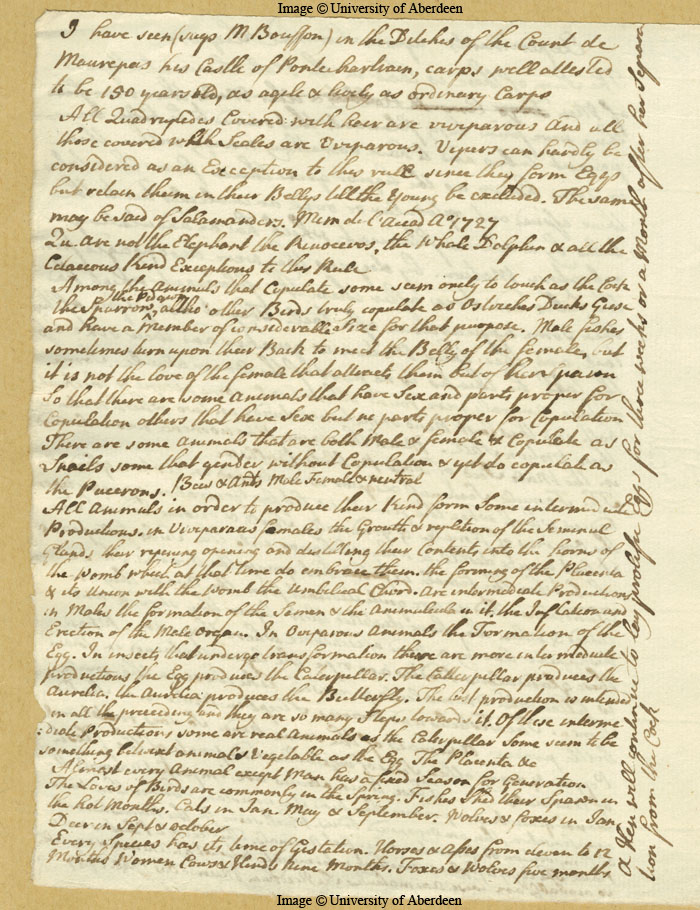 Image © University of Aberdeen
I have seen (says M Bouffon) in the Ditches of the Count de
Maurepas his Castle of Pontchartrain, carps well attested
to be 150 years old, as agile & lively as ordinary Carps
All Quadrupedes Covered with hair are viviparous And all
those covered with Scales are Oviparous. Vipers can hardly be
considered as an Exception to this rule since they form Eggs
but retain them in their Bellys till the Young be excluded. The same
may be said of Salamanders. Mem de l'Acad Ao 1727
Qu. Are not the Elephant the Rinoceros, the Whale Dolphin & all the
Cetaceous Kind Exceptions to this Rule
Among the Animals that Copulate some seem onely to touch as the Cock
the Sparrow, the Pigeon, altho other Birds truly copulate as Ostriches Ducks Geese
and have a Member of considerable size for that purpose. Male fishes
sometimes turn upon their Back to meet the Belly of the female, but
it is not the love of the female that attracts them but of her spawn
So that there are some Animals that have Sex and parts proper for
Copulation others that have Sex but no parts proper for Copulation
There are some animals that are both Male & female & Copulate as
Snails some that gender without Copulation & yet do copulate as
the Pucerons. Bees & Ants Male Female & neutral
All Animals in order to produce their Kind form Some intermediate
Productions. in Viviparous females the Growth & repletion of the Seminal
Glands their ripening opening and distilling their Contents into the horns of
the Womb which at that time do embrace them. the forming of the Placenta
& its Union with the Womb the Umbelical Chord. Are intermediate Productions
in Males the formation of the Semen & the Animulcula in it. the Inflation and
Erection of the Male Organ. In Oviparous Animals the Formation of the
Egg. In insects that undergo transformation there are more intermediate
productions the Egg produces the Caterpillar. The Catterpillar produces the
Aurelia. the Aurelia produces the Butterfly. The last production is intended
in all the preceeding and they are so many Steps towards it. Of these interme
:diate Productions some are real Animals as the Caterpillar Some seem to be
something betwixt animal & Vegetable as the Egg The Placenta &c
Almost every Animal except Man has a fixed Season for Generation
The Loves of Birds are commonly in the Spring. Fishes Shed their Spawn in
the hot Months. Cats in Jan. May & September. Wolves & foxes in Jan
Deer in Sept & october
Every Species has its time of Gestation. Horses & Asses from eleven to 12
Months Women Cows & Hinds Nine Months. Foxes & Wolves five months
A Hen will continue to lay prolifise Eggs for three weeks or a Month after her Separa
tion from the Cock
Image © University of Aberdeen